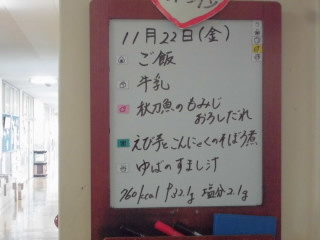 11月22日(金)
ご飯
牛乳
秋刀魚のもみじ
おろしだれ
えび芋とこんにゃくのそぼろ煮
ゆばのすまし汁
760kcal P32.1g 塩分2.1g